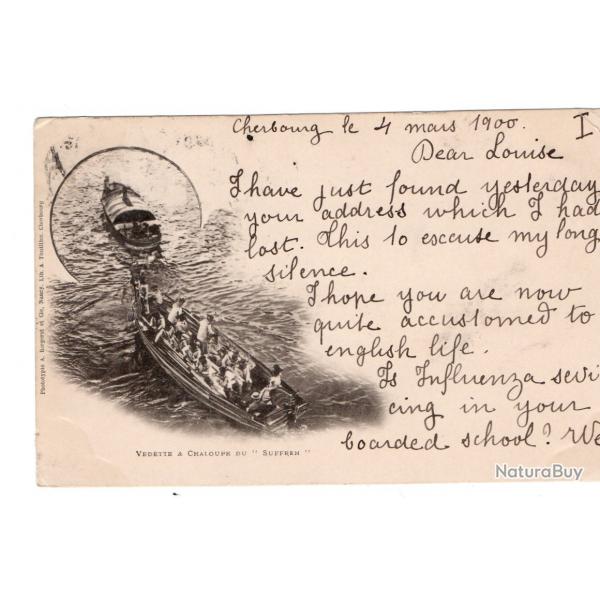 Cherbourg le 4 mars 1900. I
Dear Louise
I have just found yesterday
your address which I had
lost. This to escuse my long
silence.
I hope you are now
quite accustomed to
english life.
Is Influenza sevi
cing in your
boarded school? We
Phototypie A. Bergeret et Cie, Nancy. Lib. A Teuillier, Cherbourg
VEDETTE & CHALOUPE DU " SUFFREN "
NaturaBuy